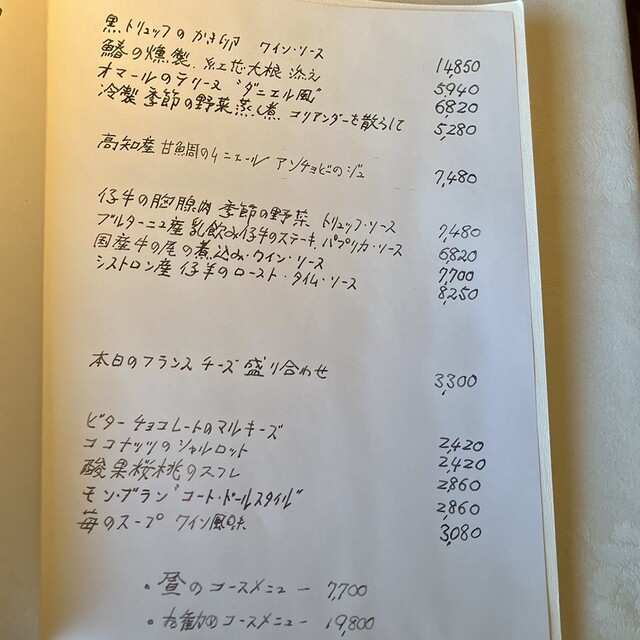 黒トリュフのかき卵 ワイン・ソース 14,850
鰆の燻製、紅芯大根 添え 5,940
オマールのテリーヌ "ダニエル風" 6,820
冷製 季節の野菜 蒸し煮 コリアンダーを散らして 5,280
高知産 甘鯛のムニエール アンチョビのジュ 7,480
仔牛の胸腺肉 季節の野菜 トリュフ・ソース 7,480
ブルターニュ産 乳飲み仔牛のステーキ、パプリカ・ソース 6,820
国産牛の尾の煮込み・ワイン・ソース 7,700
シストロン産 仔羊のロースト・タイム・ソース 8,250
本日のフランス チーズ 盛り合わせ 3,300
ビター チョコレートのマルキーズ 2,420
ココナッツのシャルロット 2,420
酸果桜桃のスフレ 2,860
モン・ブラン "コート・ドールスタイル" 2,860
苺のスープ ワイン風味 3,080
・昼のコースメニュー 7,700
・お勧めコースメニュー 19,800